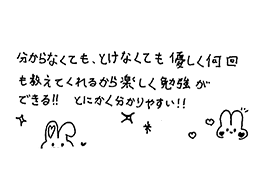 分からなくても、とけなくても優しく何回
も教えてくれるから楽しく勉強が
できる!! とにかく分かりやすい!!